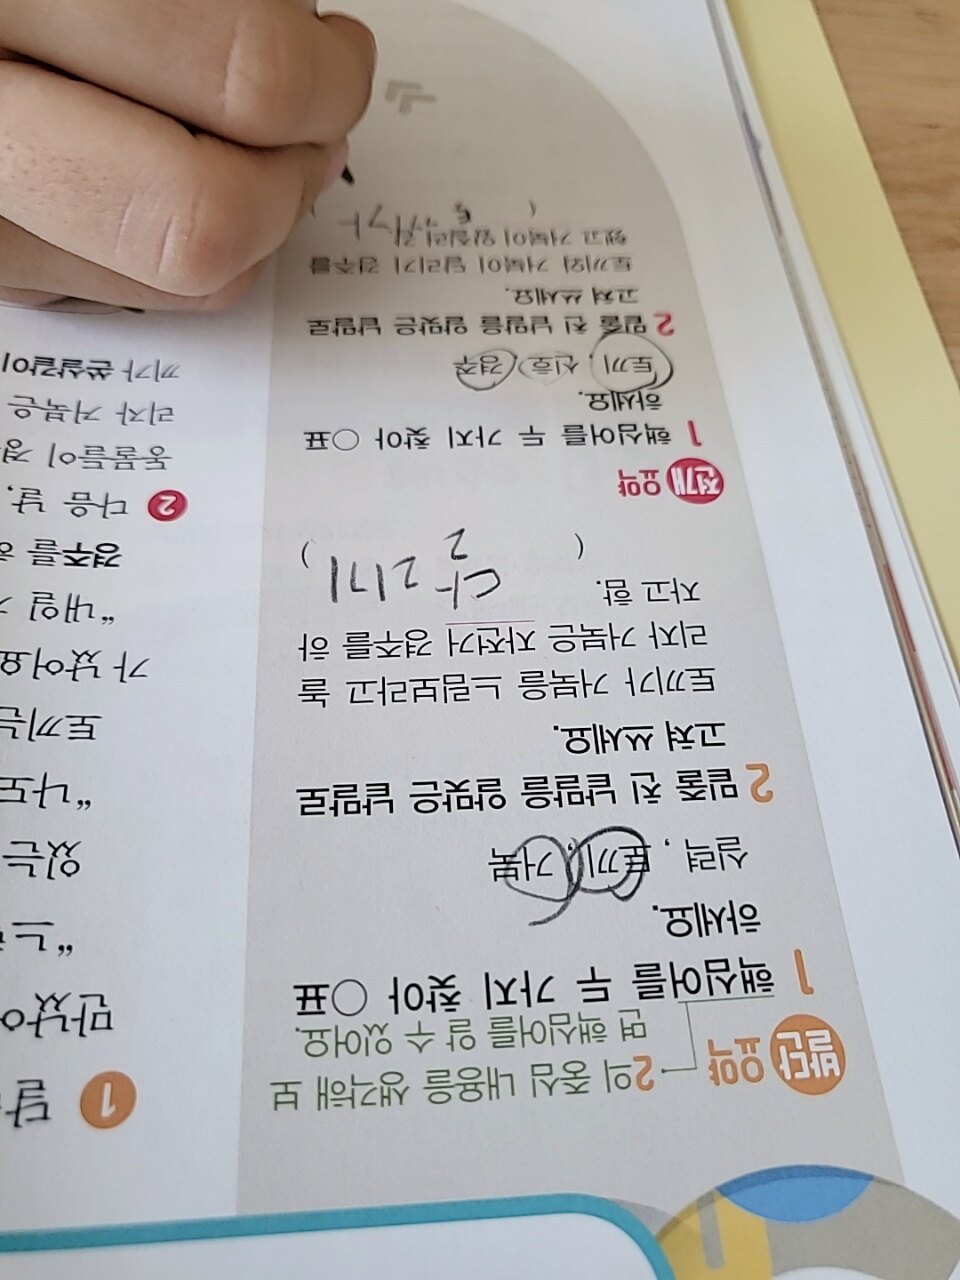 발단 요약
2의 중심 내용을 생각해 보
면 핵심어를 알 수 있어요.
1 핵심어를 두 가지 찾아 ○표
하세요.
실력, 토끼, 거북
2 밑줄 친 낱말을 알맞은 낱말로
고쳐 쓰세요.
토끼가 거북을 느림보라고 놀
리자 거북은 자전거 경주를 하
자고 함.
( 달리기 )
전개 요약
1 핵심어를 두 가지 찾아 ○표
하세요.
토끼, 신호, 경주
2 밑줄 친 낱말을 알맞은 낱말로
고쳐 쓰세요.
토끼와 거북이 달리기 경주를
했고 거북이 앞질러 감
(
1
만났어
있는
"나도
토끼는
가 났어요
"내일
경주를 하
2 다음 날,
동물들이
리자 거북은
끼가 쏜살같이